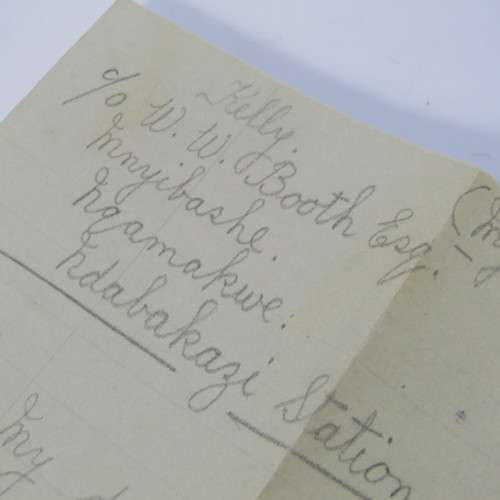 Kelly.
c/o W. W. Booth Esq.
Mnyibashe.
Nqamakwe.
Ndabakazi Station
(My
My